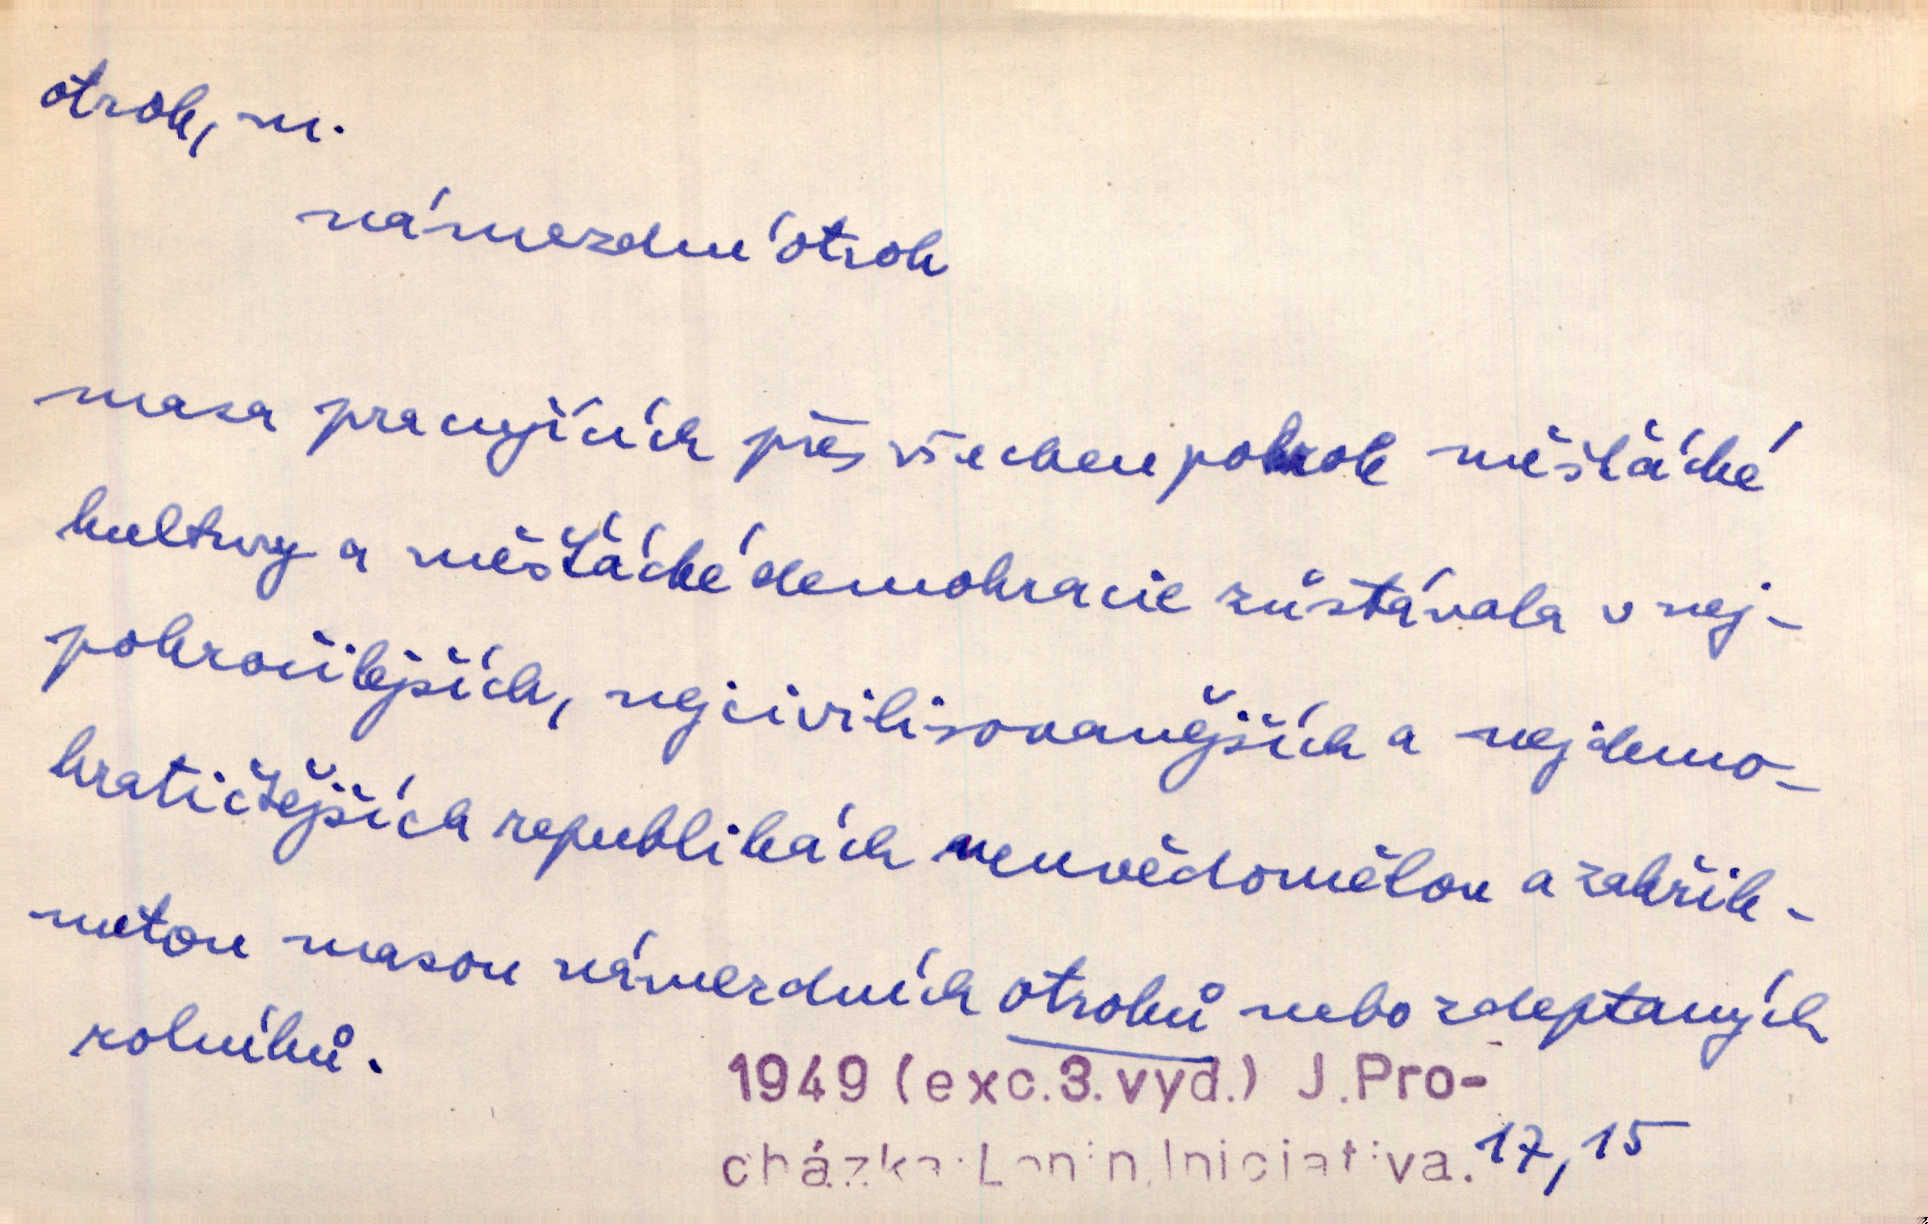 otrok, m.
námezdní otrok
masa pracujících přes všechen pokrok měšťácké
kultury a měšťácké demokracie zůstávala v nej-
pokročilejších, nejcivilisovanějších a nejdemo-
kratičtějších republikách neuvědomělou a zakřik-
nutou masou námezdních otroků nebo zdeptaných
rolníků.
1949 (exc. 3. vyd.) J. Pro-
cházka: Lenin, Iniciativa. 17, 15